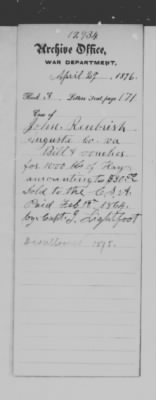 12934
Archive Office,
WAR DEPARTMENT,
April 29, 1876.
Book A. Letters Sent, page 171
Case of
John
Augusta Co. Va
Bill & voucher
for 1000 lbs of Hay
amounting to $30.00
Sold to the C.S.A.
Paid Feb 18th 1864
by Capt J. Lightfoot
1878.